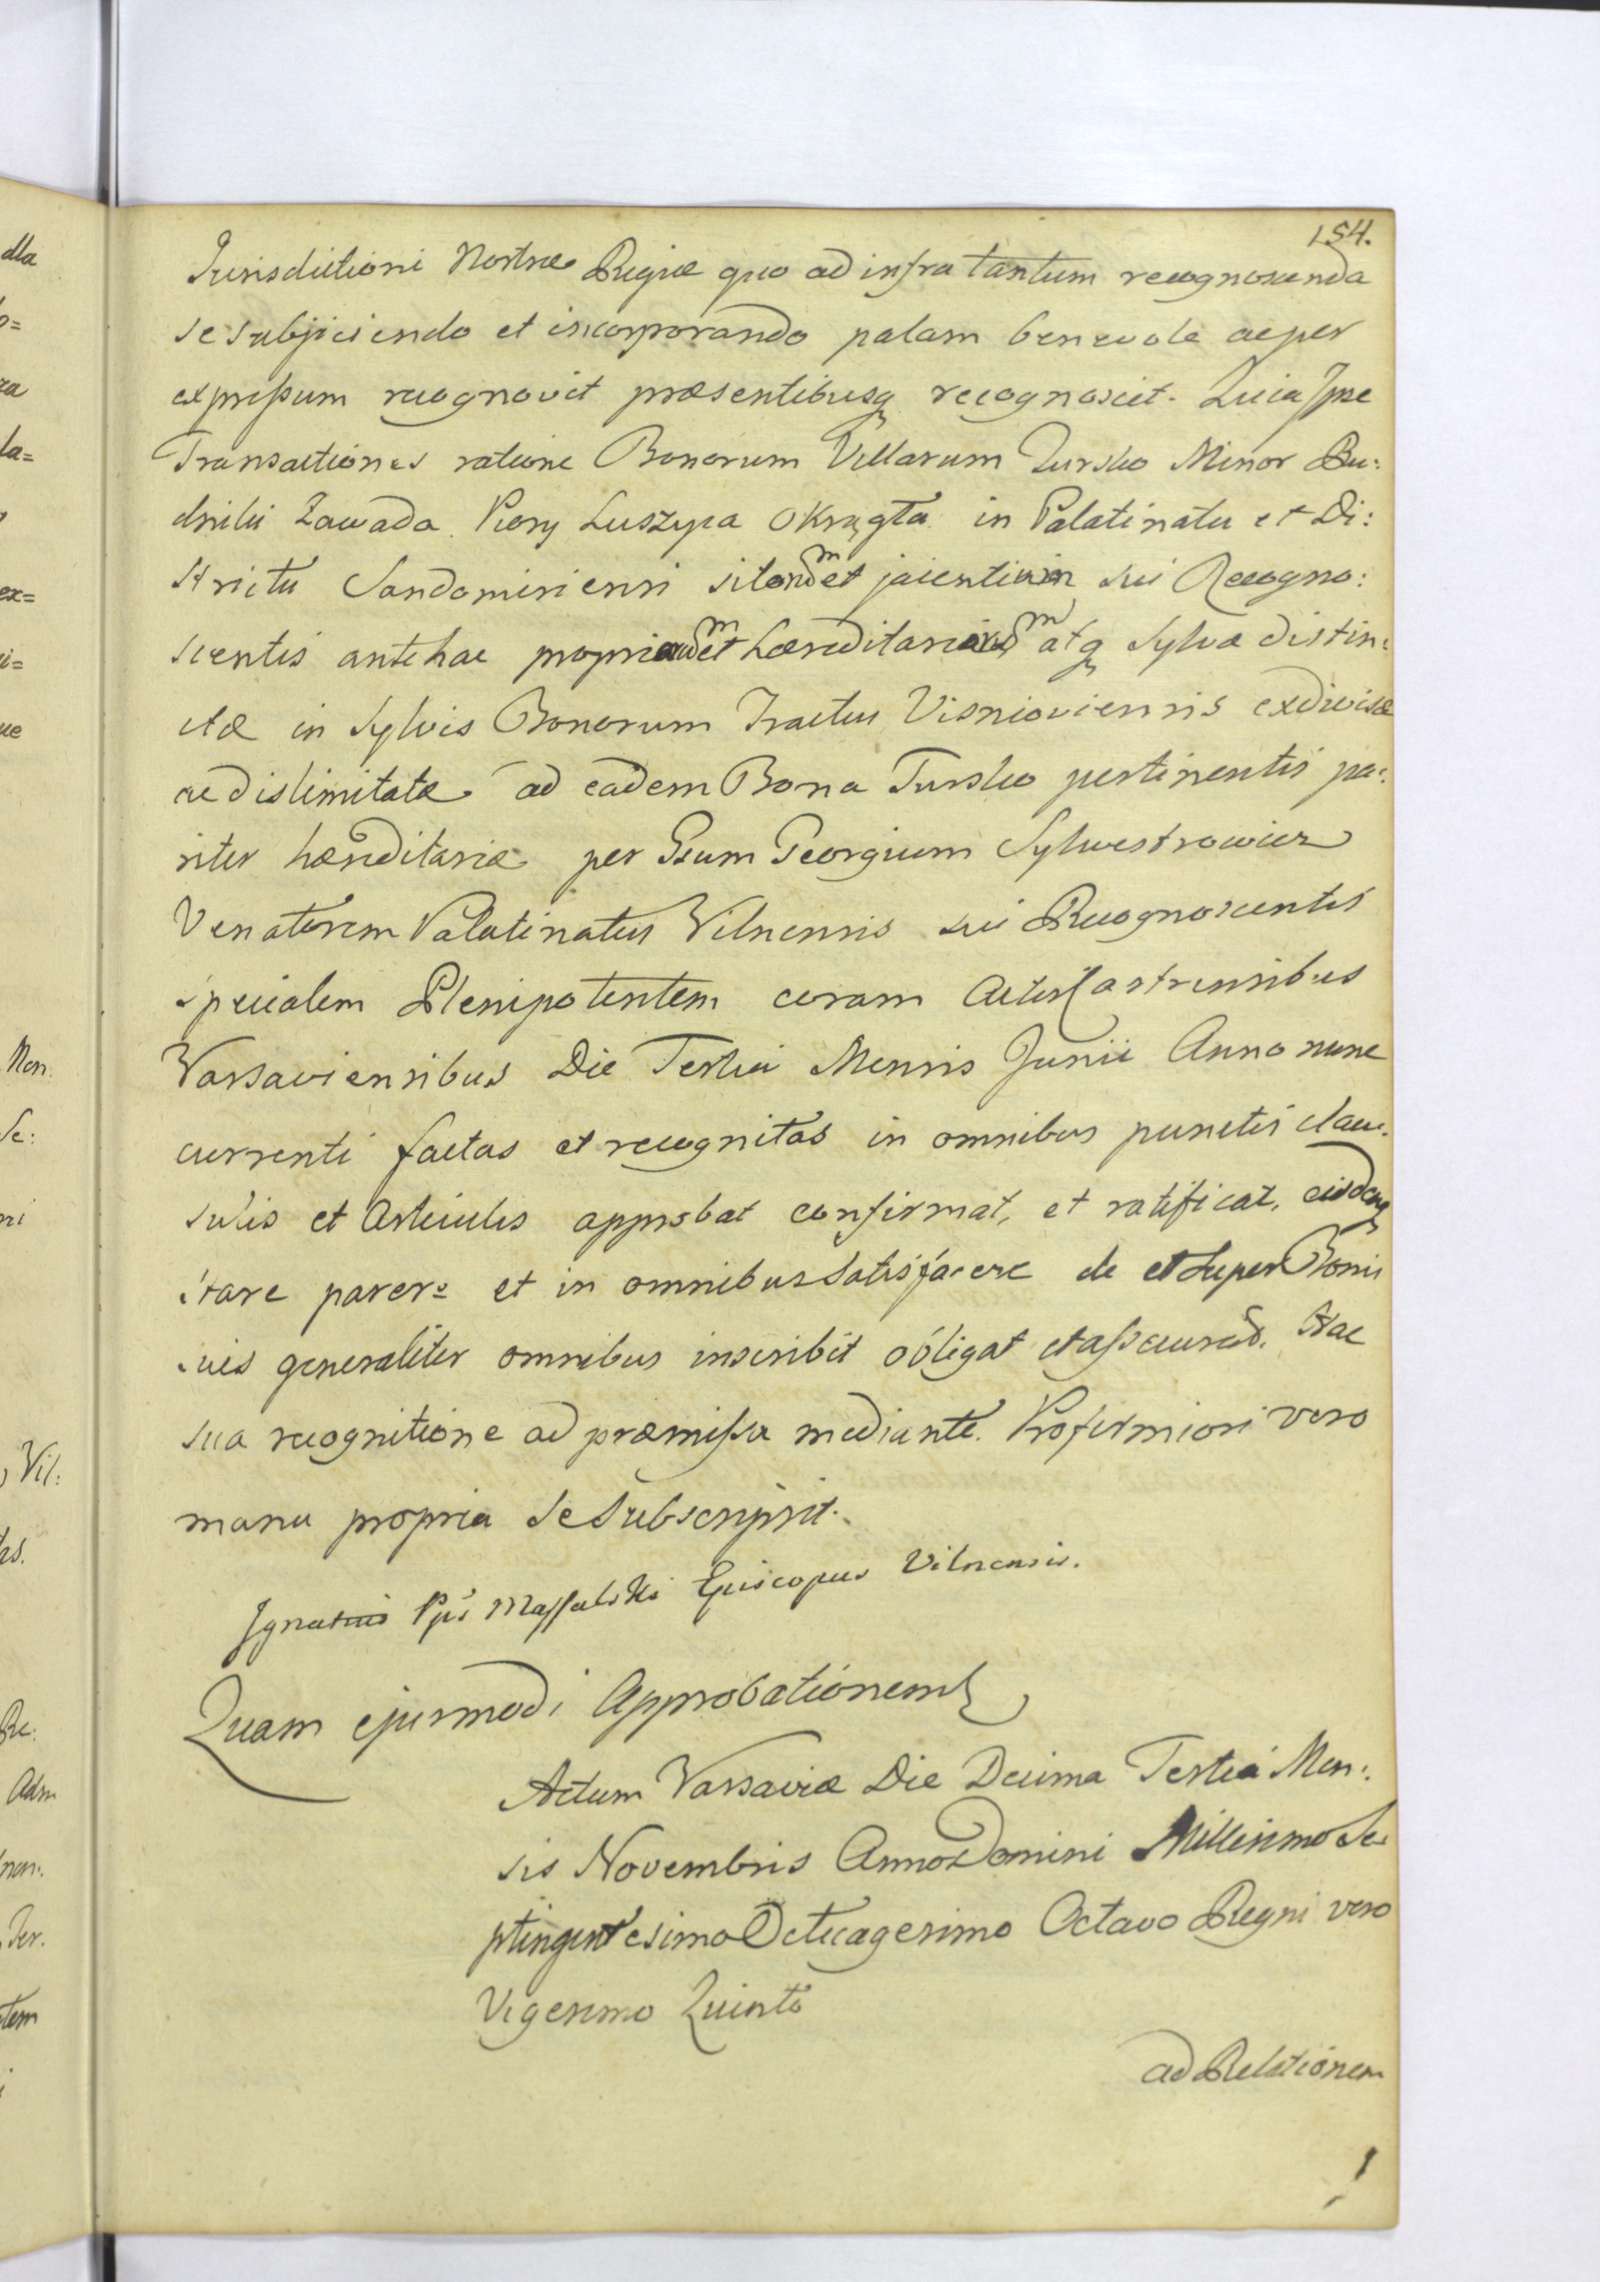 154.
Jurisdictioni Nostræ Regiæ quo ad infra tantum recognoscenda
se subjiciendo et incorporando palam benevole ac per
expressum recognovit præsentibusq recognoscit. Quia Ipse
Transactiones ratione Bonorum Villarum Tursko Minor Bu:
dniki Zawada Kępa Łuszyca Okrągła in Palatinatu et Di:
strictu Sandomiriensi sitorum et jacentium sui Recogno:
scentis antehac propriorum et hæreditariorum atq Sylvæ distin:
ctæ in Sylvis Bonorum Tractus Visnioviensis exdivisæ
ac dislimitatæ ad eadem Bona Tursko pertinentis pa:
riter hæreditariæ per Gsum Georgium Sylwestrowicz
Venatorem Palatinatus Vilnensis sui Recognoscentis
specialem Plenipotentem coram Actis Castrensibus
Varsaviensibus Die Tertia Mensis Junii Anno nunc
currenti factas et recognitas in omnibus punctis clau:
sulis et Articulis approbat confirmat, et ratificat, eisdemq
stare parere et in omnibus satisfacere de et super Bonis
suis generaliter omnibus inscribit obligat et assecurat. Hac
sua recognitione ad præmissa mediante. Pro firmiori vero
manu propria se subscripsit.
Ignatius Pps Massalski Episcopus Vilnensis.
Quam ejusmodi Approbationem
Actum Varsaviæ Die Decima Tertia Men:
sis Novembris Anno Domini Millesimo Se
ptingentesimo Octuagesimo Octavo Regni vero
Vigesimo Quinto
ad Relationem
dla
ex=
Non.
Vil:
Re:
Adm
Ter.